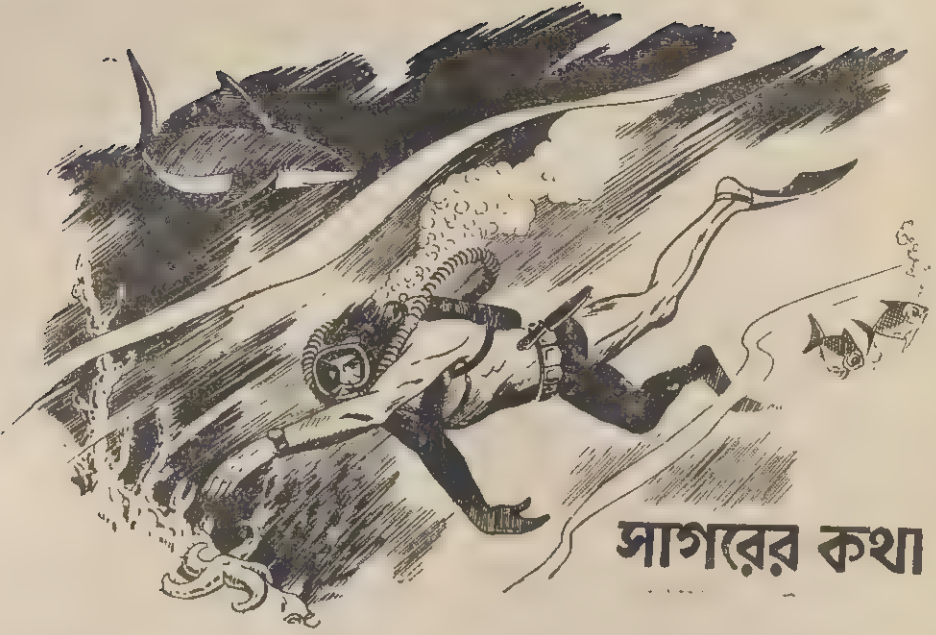 সাগরের কথা